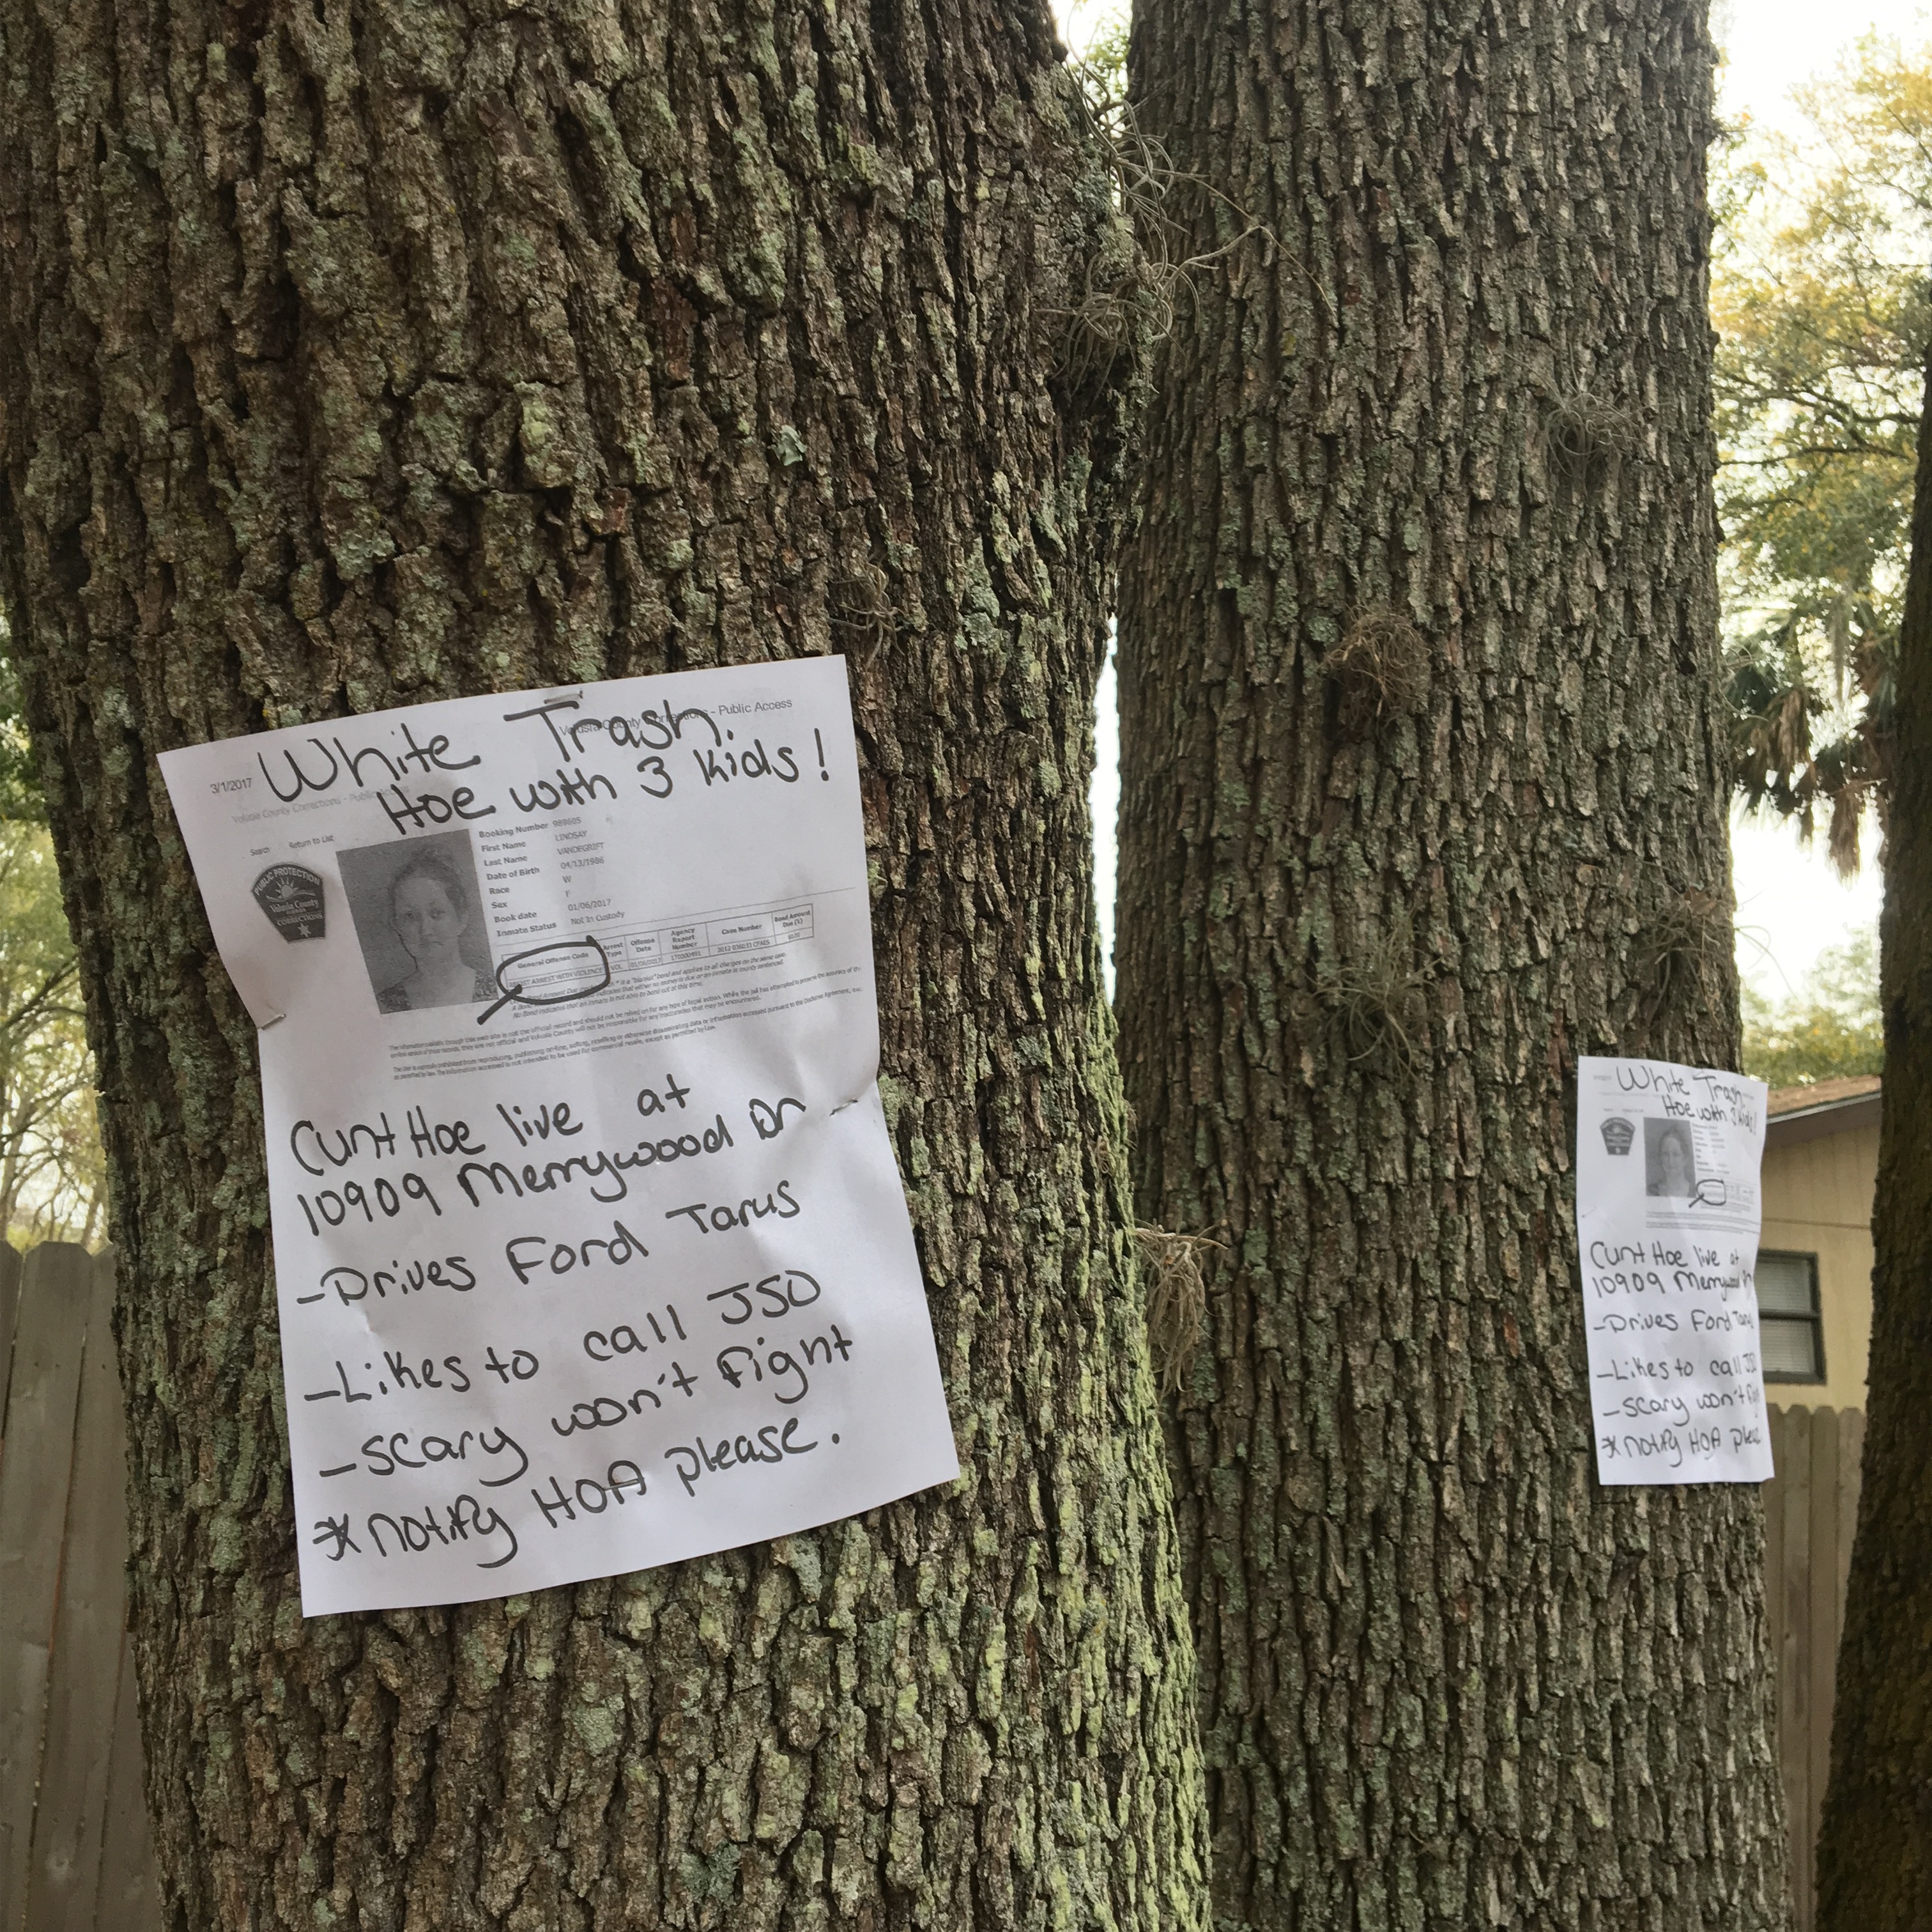 3/1/2017
Volusia County Corrections - Public Access
White Trash.
Hoe with 3 kids!
Volusia County Corrections - Public
Search Return to List
PUBLIC PROTECTION
Volusia County
FLORIDA
CORRECTIONS
Booking Number 989605
First Name LINDSAY
Last Name VANDEGRIFT
Date of Birth 04/13/1986
Race W
Sex F
Book date 01/06/2017
Inmate Status Not In Custody
General Offense Code Arrest Type Offense Date Agency Report Number Case Number Bond Amount Due ($)
ARREST WITH VIOLENCE
Cunt Hoe live at
10909 Merrywood Dr
-Drives Ford Tarus
-Likes to call JSO
-scary won't fight
*notify HOA please.
White Trash
Hoe with 3 kids!
Cunt Hoe live at
10909 Merrywood Dr
-Drives Ford
-Likes to call
-scary won't
*notify HOA